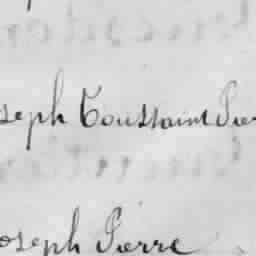 oseph Toussaint Pier
oseph Pierre